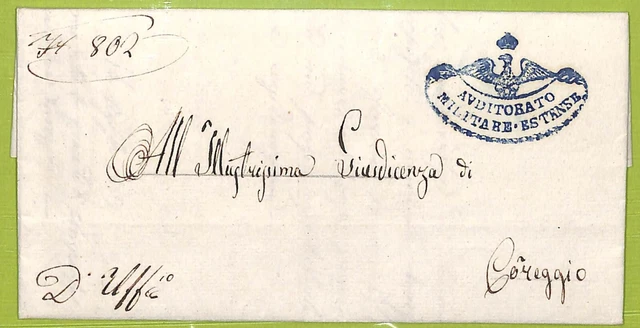 N 802
AVDITORATO
MILITARE·ESTENSE
All' Illustrissima Giusdicenza di
Correggio
D' Uffcio